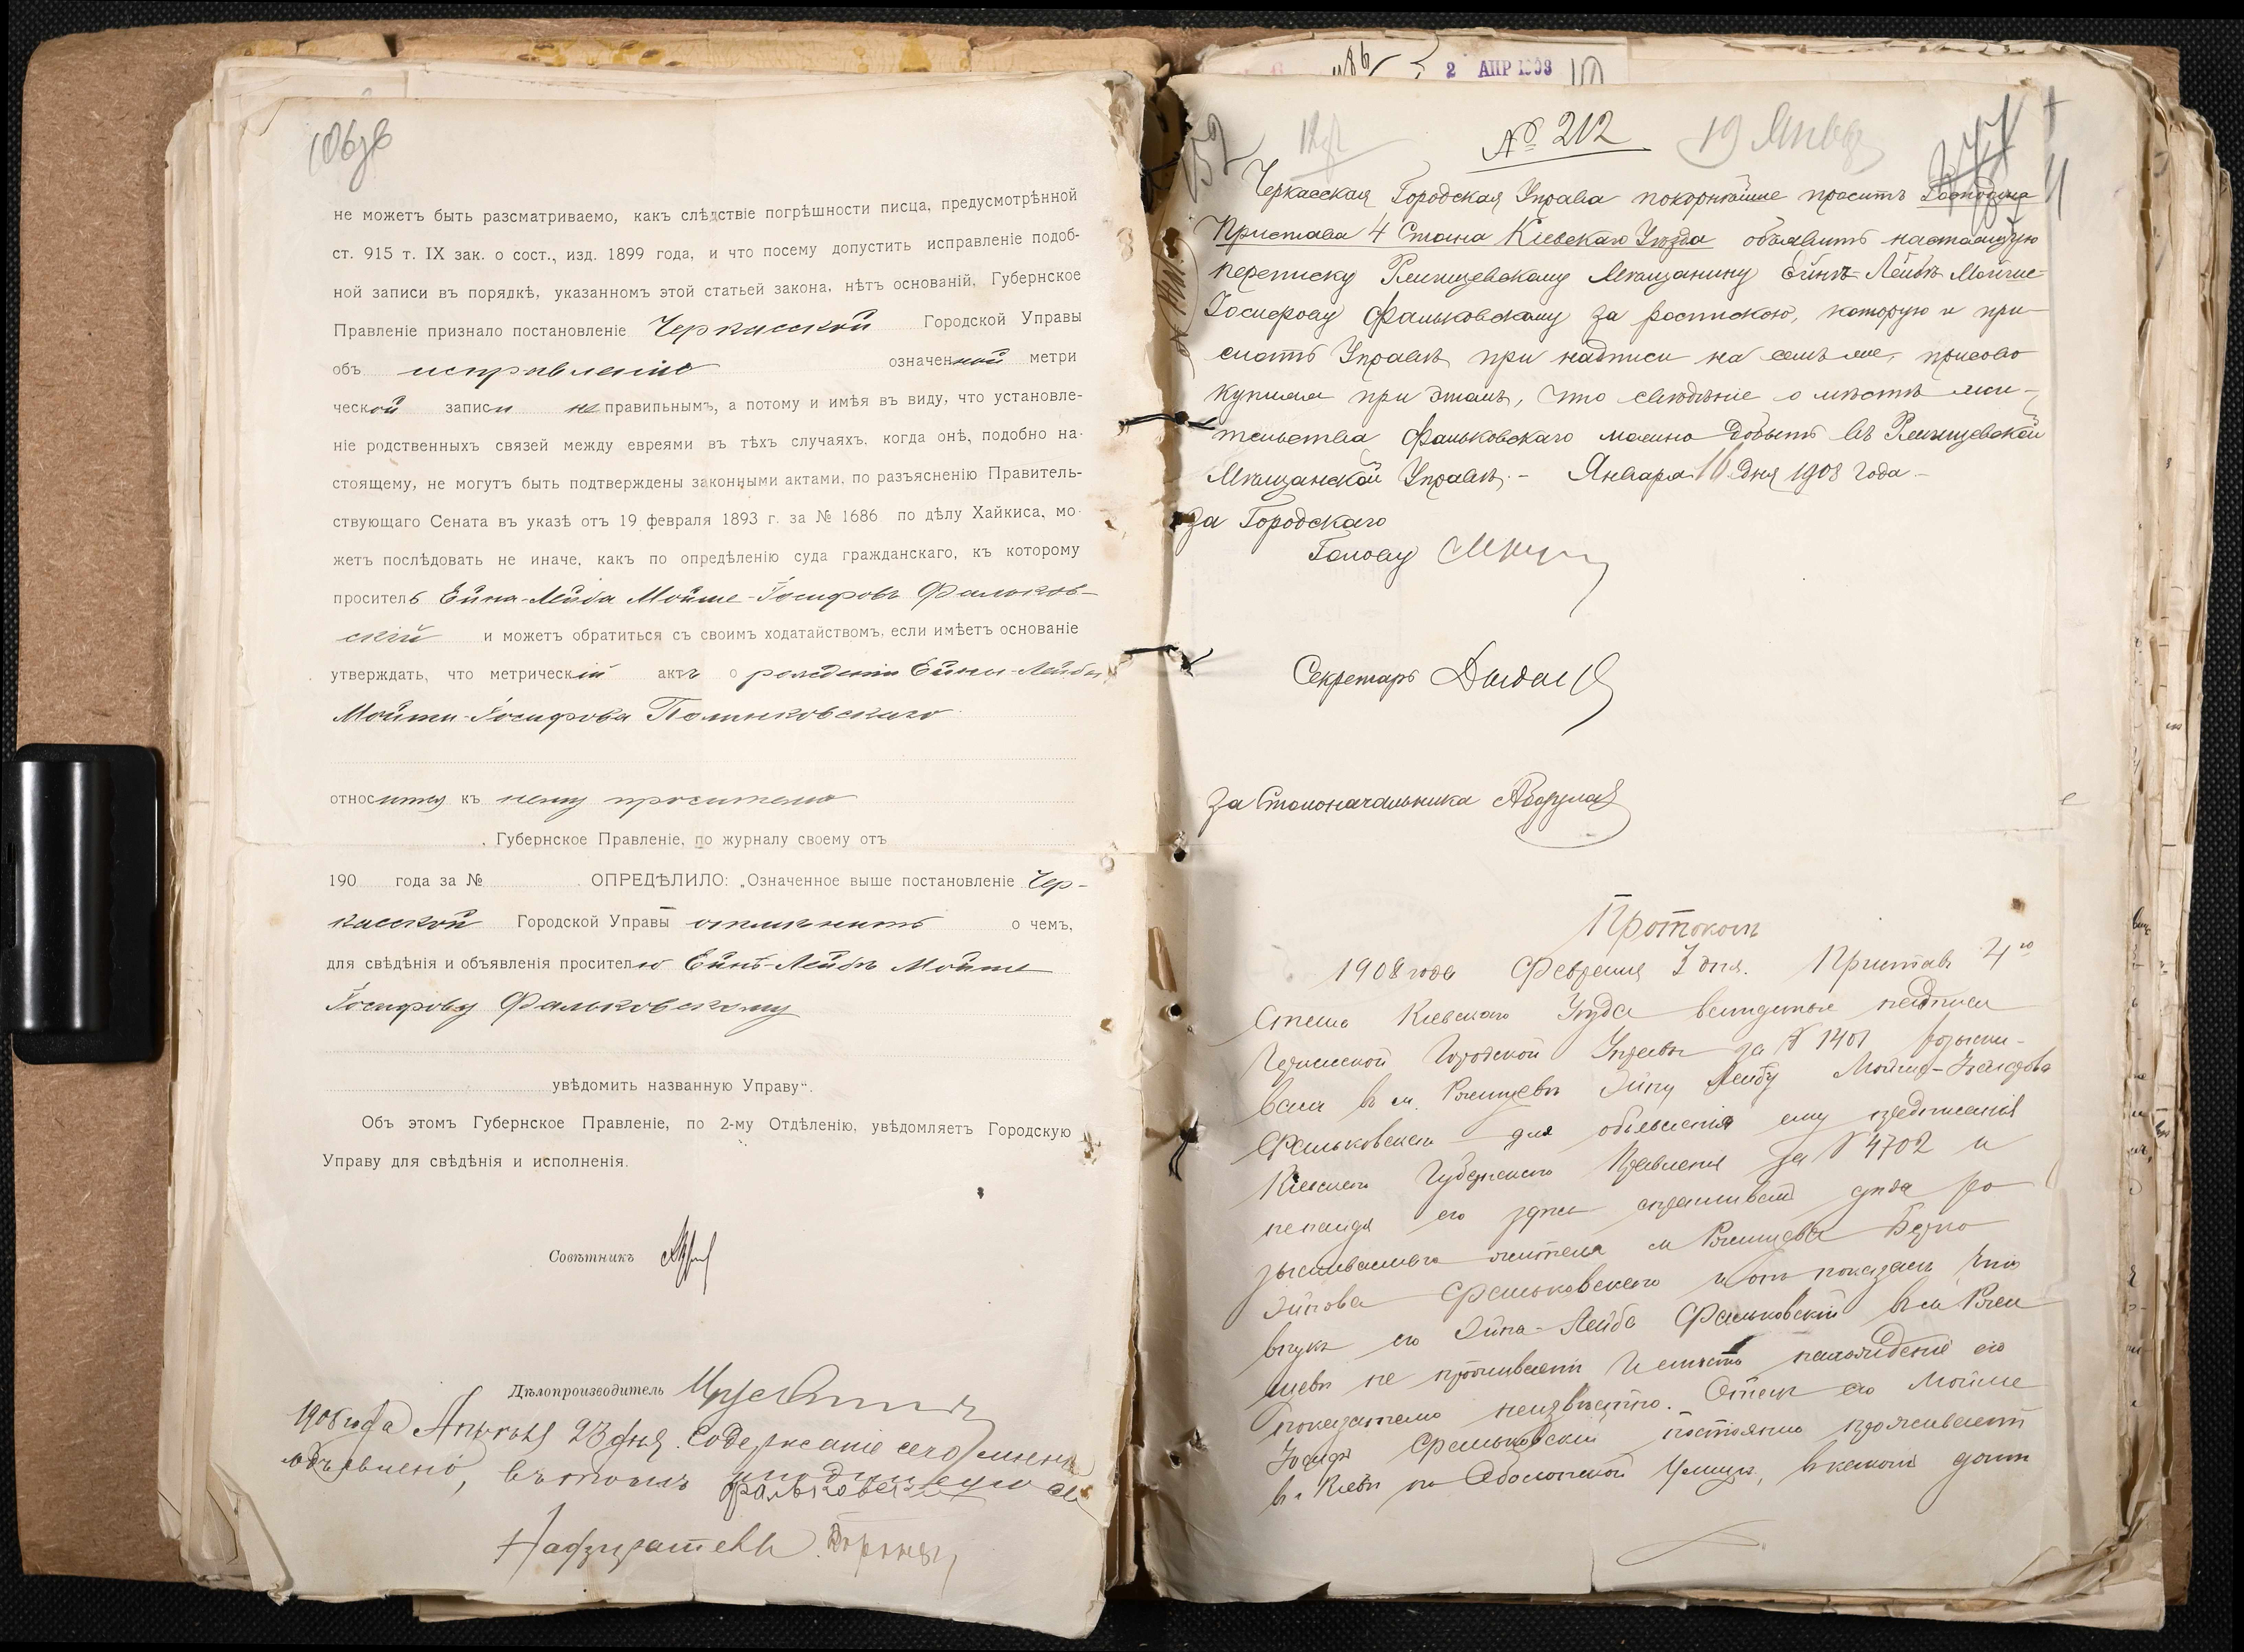 186
2 АПР 1908
186об
не можетъ быть разсматриваемо, какъ слѣдствіе погрѣшности писца, предусмотрѣнной
ст. 915 т. IX зак. о сост., изд. 1899 года, и что посему допустить исправленіе подоб-
ной записи въ порядкѣ, указанномъ этой статьей закона, нѣтъ основаній, Губернское
Правленіе признало постановленіе Черкасской Городской Управы
объ исправленіи означенной метри
ческой записи неправильнымъ, а потому и имѣя въ виду, что установле-
ніе родственныхъ связей между евреями въ тѣхъ случаяхъ, когда онѣ, подобно на-
стоящему, не могутъ быть подтверждены законными актами, по разъясненію Правитель-
ствующаго Сената въ указѣ отъ 19 февраля 1893 г. за № 1686 по дѣлу Хайкиса, мо-
жетъ послѣдовать не иначе, какъ по опредѣленію суда гражданскаго, къ которому
проситель Ейна-Лейба Мойше-Іосифовъ Фальков-
скій и можетъ обратиться съ своимъ ходатайствомъ, если имѣетъ основаніе
утверждать, что метрическій актъ о рожденіи Ейны-Лейбы
Мойши-Іосифова Полинковскаго
относится къ нему просителю
. Губернское Правленіе, по журналу своему отъ
190 года за № . ОПРЕДѢЛИЛО: „Означенное выше постановленіе Чер-
касской Городской Управы отмѣнить о чемъ,
для свѣдѣнія и объявленія просителю Ейнѣ-Лейбѣ Мойше
Іосифову Фальковскому
увѣдомить названную Управу“.
Объ этомъ Губернское Правленіе, по 2-му Отдѣленію, увѣдомляетъ Городскую
Управу для свѣдѣнія и исполненія.
Совѣтникъ
Дѣлопроизводитель
1908 года Апрѣля 23 дня. Содержаніе сего мнѣ
объявлено, въ томъ и подписуюсь
Фальковскій
Надзиратель
№ 212 19 Январ
Черкасская Городская Управа покорнѣйше проситъ Господина
Пристава 4 Стана Кіевскаго Уѣзда объявить настоящую
переписку Ржищевскому Мѣщанину Ейнѣ-Лейбѣ Мойше-
Іосифову Фальковскому за роспискою, которую и при-
слать Управѣ при надписи на семъ же, присово
купляя при этомъ, что свѣдѣніе о мѣстѣ жи-
тельства Фальковскаго можно добыть въ Ржищевской
Мѣщанской Управѣ.- Января 16 дня 1908 года.-
За Городского
Голову
Секретарь
За Столоначальника
Протоколъ
1908 года Февраля 3 дня. Приставъ 4го
Стана Кіевскаго Уѣзда вслѣдствіе надписи
Черкасской Городской Управы за № 1401 розыски-
валъ въ м. Ржищевѣ Эйну Лейбу Мойше-Іосифова
Фальковскаго для объявленія ему предписанія
Кіевскаго Губернскаго Правленія за № 4702 и
не найдя его здѣсь спрашивалъ дѣда ро
зыскиваемаго жителя м Ржищева Берко
Эйнова Фальковскаго и онъ показалъ что
внукъ его Эйна-Лейба Фальковскій въ м Ржи
щевѣ не проживаетъ и мѣсто нахожденіе его
показателю неизвѣстно. Отецъ его Мойше
Іосифъ Фальковскій постоянно проживаетъ
въ г. Кіевѣ по Оболонской улицѣ, въ какомъ домѣ